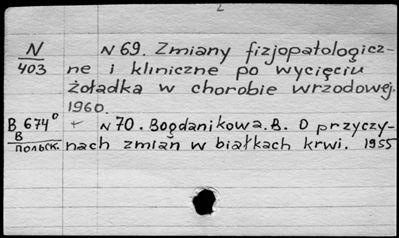 N
403
N 69. Zmiany fizjopatologicz-
ne i kliniczne po wycięciu
żołądka w chorobie wrzodowej.
1960.
B 674°
В
польск.
+ N 70. Bogdanikowa. B. O przyczy-
nach zmian w białkach krwi. 1955